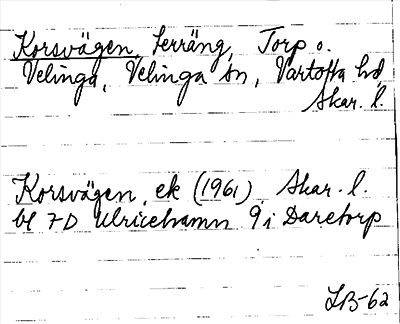 Korsvägen, terräng, Torp o.
Velinga, Velinga sn, Vartofta hd,
Skar. l.
Korsvägen, ek (1961), Skar. l.
bl 7D Ulricehamn 9i Daretorp
LB-62